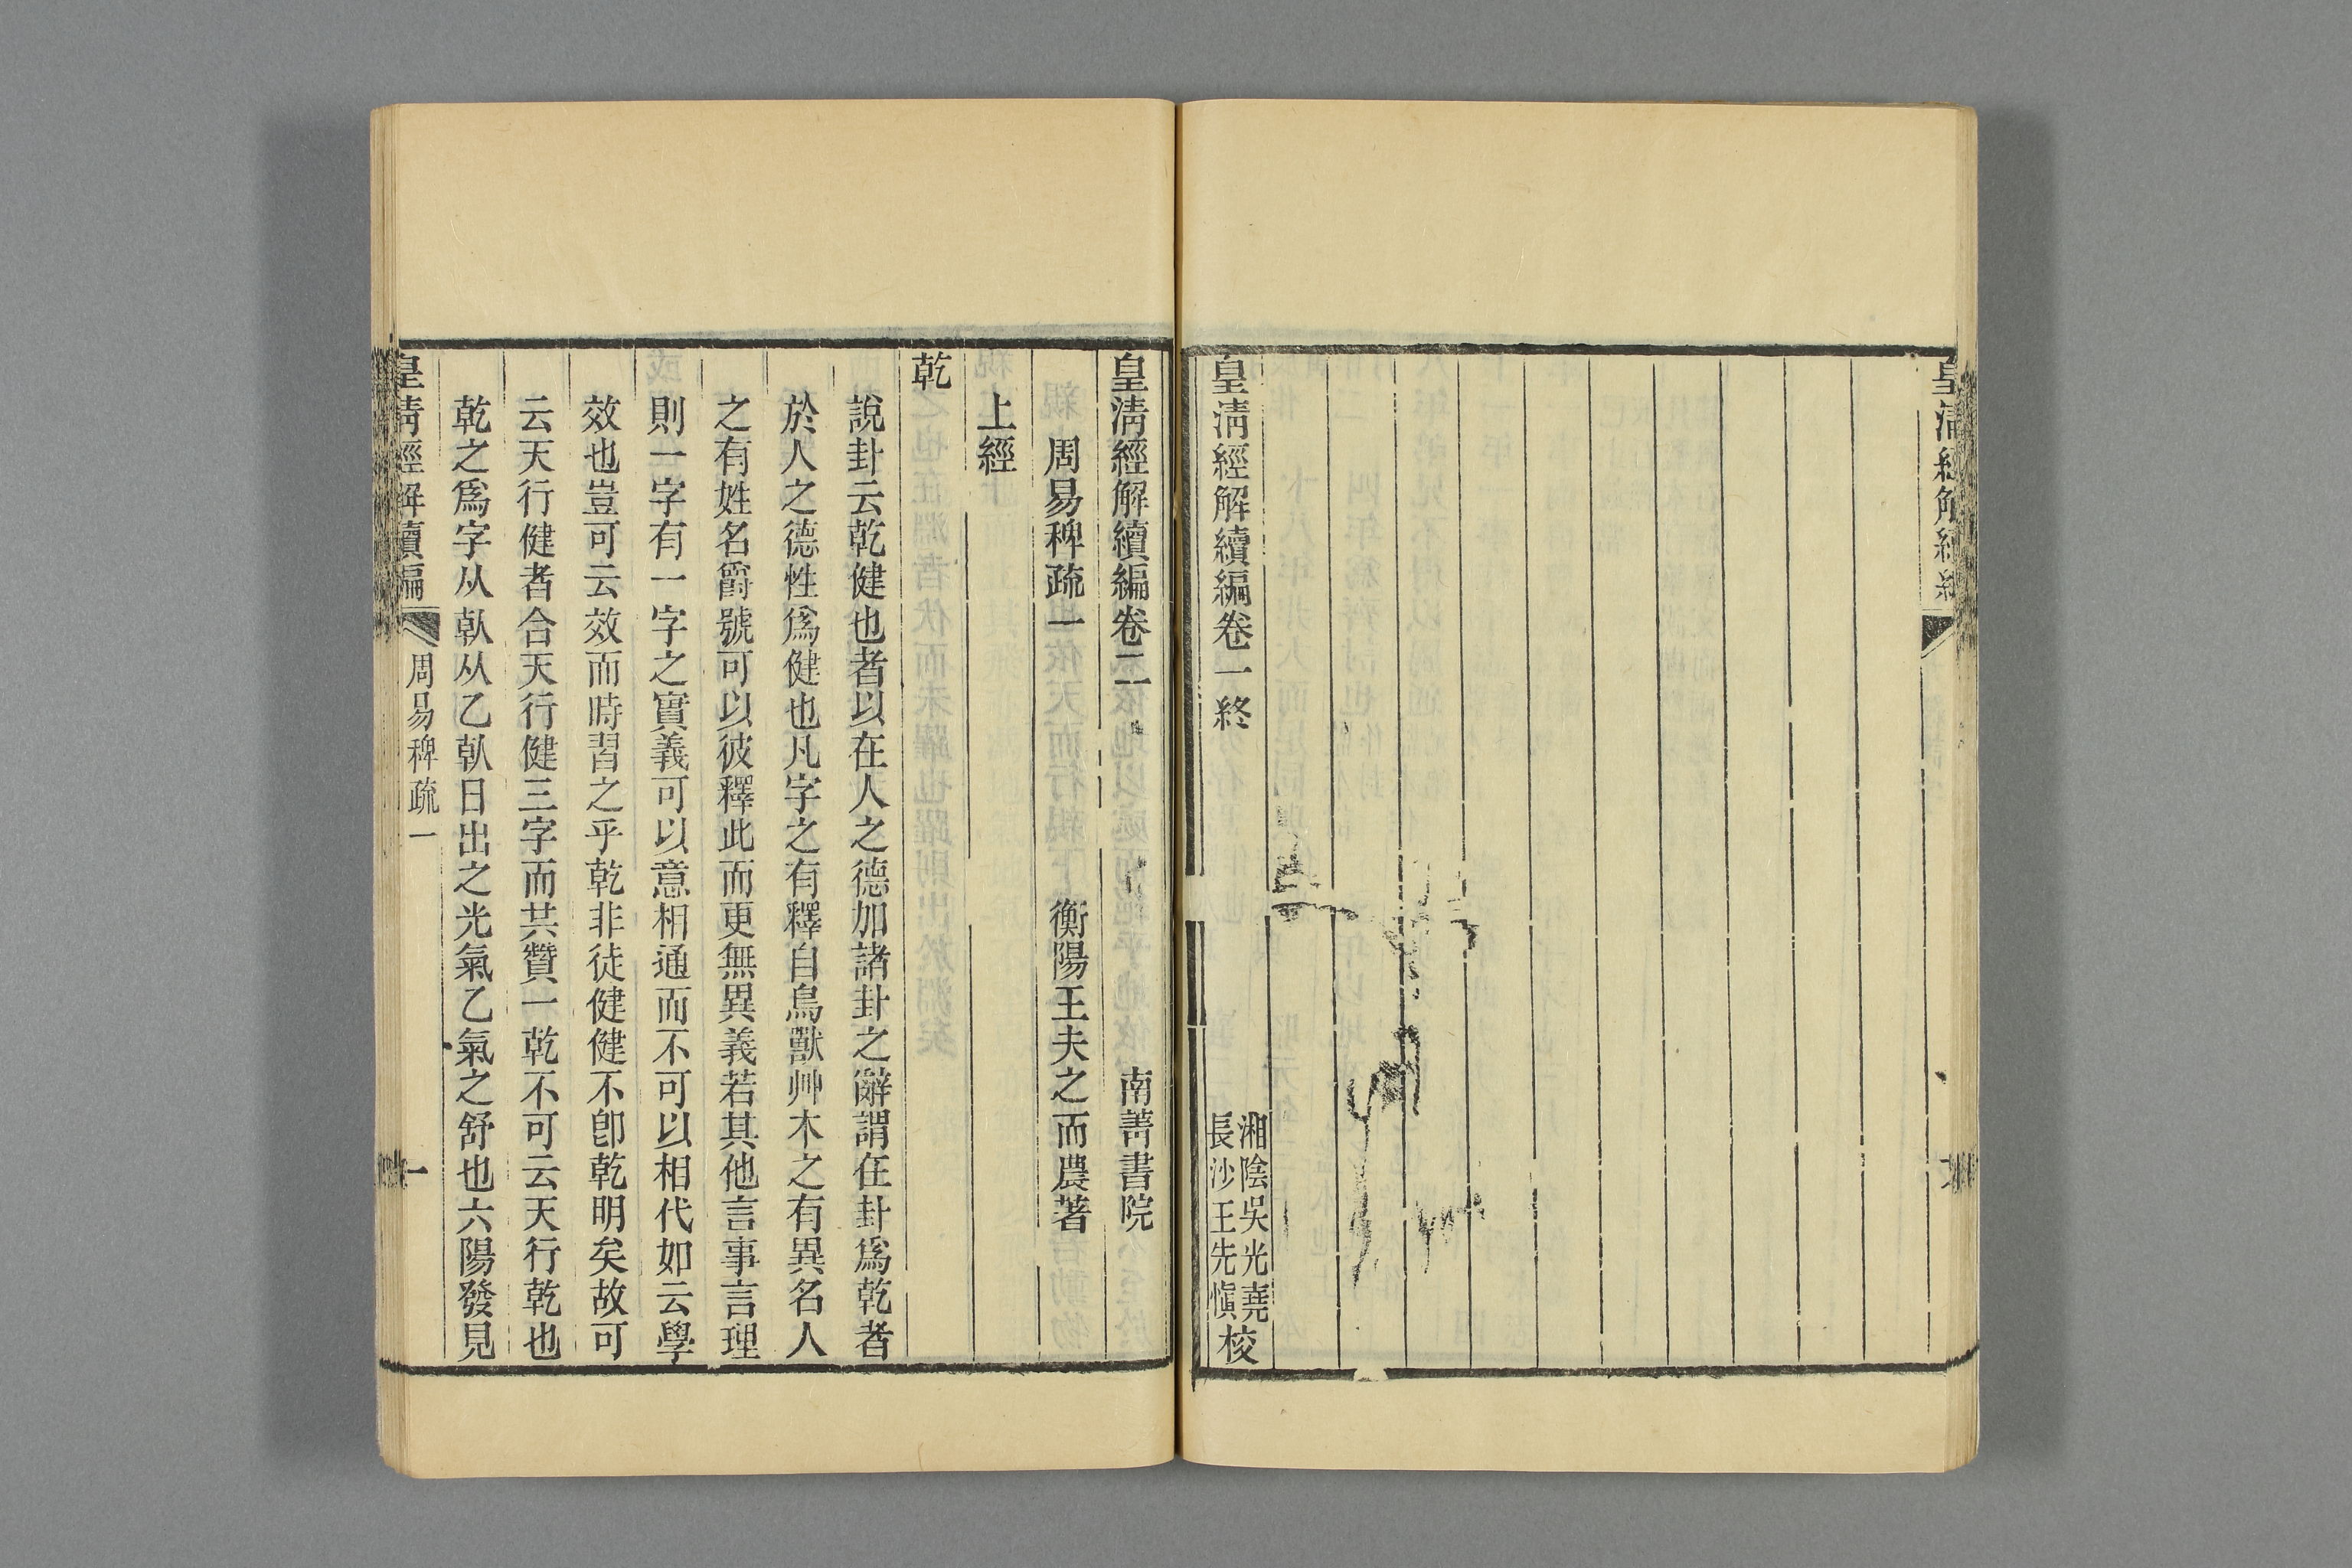 皇清經解續編卷一終
湘陰吳光堯
長沙王先愼校
皇清經解續編卷二 南菁書院
周易稗疏一 衡陽王夫之而農著
上經
乾
說卦云乾健也者以在人之德加諸卦之辭謂在卦爲乾者
於人之德性爲健也凡字之有釋自鳥獸艸木之有異名人
之有姓名爵號可以彼釋此而更無異義若其他言事言理
則一字有一字之實義可以意相通而不可以相代如云學
效也豈可云效而時習之乎乾非徒健健不卽乾明矣故可
云天行健者合天行健三字而共贊一乾不可云天行乾也
乾之爲字从倝从乙倝日出之光氣乙氣之舒也六陽發見
皇清經解續編 周易稗疏一 一